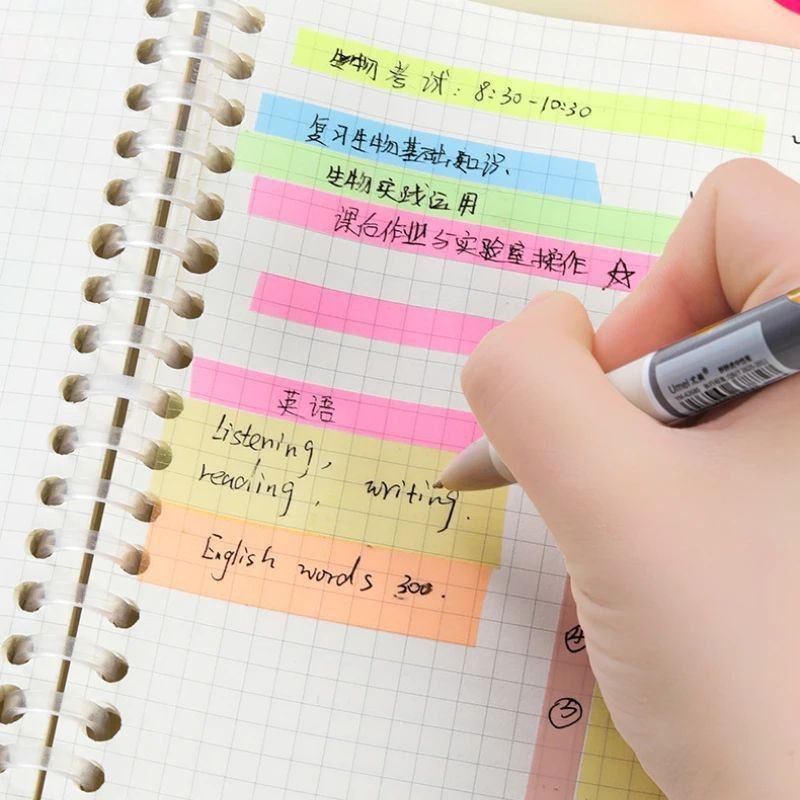 生物考试: 8:30-10:30
复习生物基础知识、
生物实践运用
课后作业与实验室操作 ☆
英语
Listening,
reading, writing.
English words 300.
④
③
Umei 尤美®